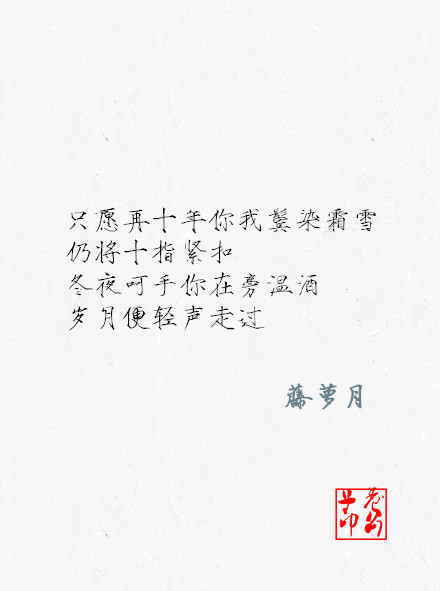 只愿再十年你我鬓染霜雪
仍将十指紧扣
冬夜呵手你在旁温酒
岁月便轻声走过
藤萝月